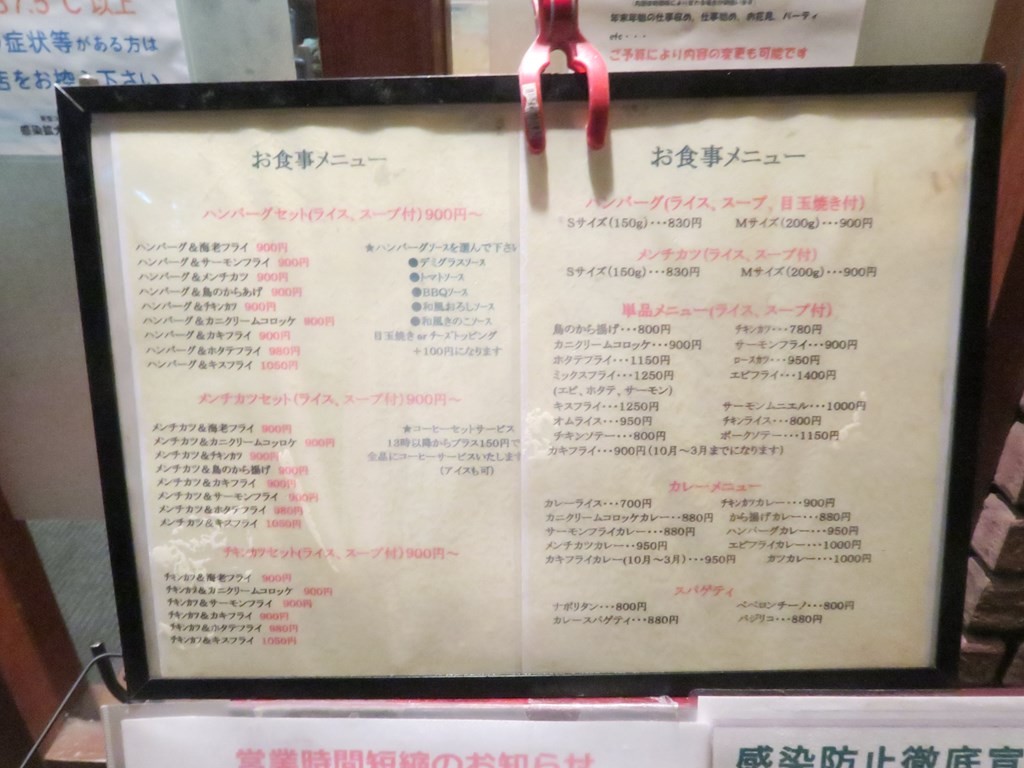 37.5℃以上
症状等がある方は
店をお控え下さい
年末年始の仕事収め、仕事始め、お花見、パーティ
etc・・・
ご予算により内容の変更も可能です
お食事メニュー
ハンバーグセット(ライス、スープ付)900円～
ハンバーグ&海老フライ 900円
ハンバーグ&サーモンフライ 900円
ハンバーグ&メンチカツ 900円
ハンバーグ&鳥のからあげ 900円
ハンバーグ&チキンカツ 900円
ハンバーグ&カニクリームコロッケ 900円
ハンバーグ&カキフライ 900円
ハンバーグ&ホタテフライ 980円
ハンバーグ&キスフライ 1050円
★ハンバーグソースを選んで下さい
●デミグラスソース
●トマトソース
●BBQソース
●和風おろしソース
●和風きのこソース
目玉焼き or チーズトッピング
＋100円になります
メンチカツセット(ライス、スープ付)900円～
メンチカツ&海老フライ 900円
メンチカツ&カニクリームコロッケ 900円
メンチカツ&チキンカツ 900円
メンチカツ&鳥のから揚げ 900円
メンチカツ&カキフライ 900円
メンチカツ&サーモンフライ 900円
メンチカツ&ホタテフライ 980円
メンチカツ&キスフライ 1050円
★コーヒーセットサービス
13時以降からプラス150円で
全品にコーヒーサービスいたします
(アイスも可)
チキンカツセット(ライス、スープ付)900円～
チキンカツ&海老フライ 900円
チキンカツ&カニクリームコロッケ 900円
チキンカツ&サーモンフライ 900円
チキンカツ&カキフライ 900円
チキンカツ&ホタテフライ 980円
チキンカツ&キスフライ 1050円
お食事メニュー
ハンバーグ(ライス、スープ、目玉焼き付)
Sサイズ(150g)・・・830円 Mサイズ(200g)・・・900円
メンチカツ(ライス、スープ付)
Sサイズ(150g)・・・830円 Mサイズ(200g)・・・900円
単品メニュー(ライス、スープ付)
鳥のから揚げ・・・800円 チキンカツ・・・780円
カニクリームコロッケ・・・900円 サーモンフライ・・・900円
ホタテフライ・・・1150円 ロースカツ・・・950円
ミックスフライ・・・1250円 エビフライ・・・1400円
(エビ、ホタテ、サーモン)
キスフライ・・・1250円 サーモンムニエル・・・1000円
オムライス・・・950円 チキンライス・・・800円
チキンソテー・・・800円 ポークソテー・・・1150円
カキフライ・・・900円(10月～3月までになります)
カレーメニュー
カレーライス・・・700円 チキンカツカレー・・・900円
カニクリームコロッケカレー・・・880円 から揚げカレー・・・880円
サーモンフライカレー・・・880円 ハンバーグカレー・・・950円
メンチカツカレー・・・950円 エビフライカレー・・・1000円
カキフライカレー(10月～3月)・・・950円 カツカレー・・・1000円
スパゲティ
ナポリタン・・・800円 ペペロンチーノ・・・800円
カレースパゲティ・・・880円 バジリコ・・・880円
営業時間短縮のお知らせ
感染防止徹底宣